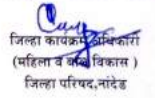 जिल्हा कार्यक्रम अधिकारी
(महिला व बाल विकास)
जिल्हा परिषद,नांदेड